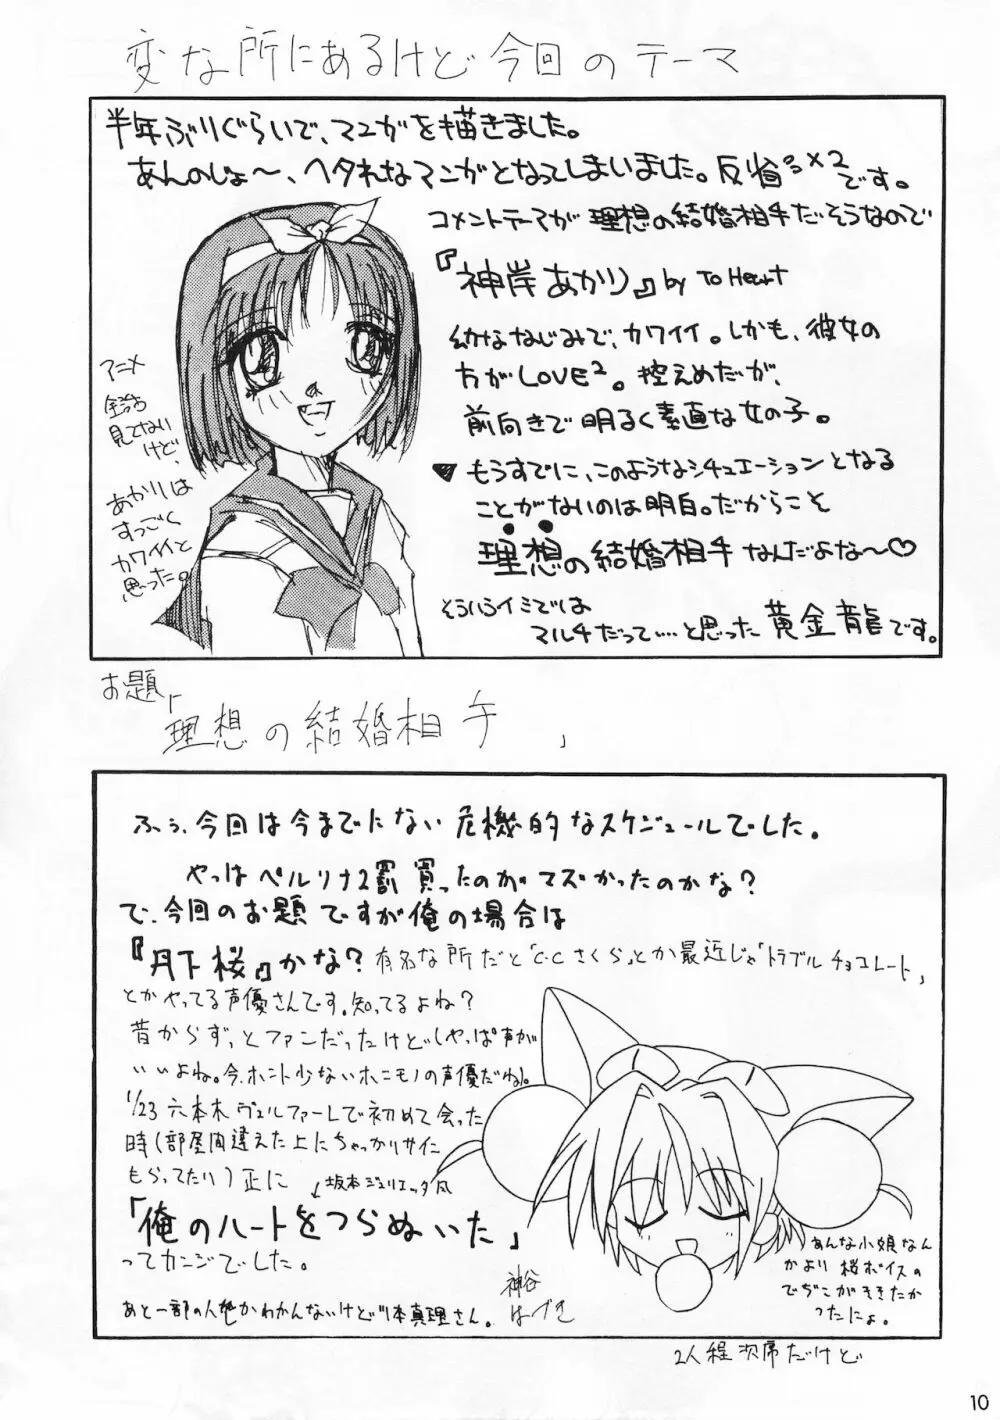 変な所にあるけど今回のテーマ
半年ぶりぐらいで、マンガを描きました。
あんのじょ〜、ヘタれなマンガとなってしまいました。反省×2です。
コメントテーマが理想の結婚相手だそうなので
『神岸あかり』by To Heart
幼ななじみで、カワイイ。しかも、彼女の
方がLOVE²。控えめだが、
前向きで明るく素直な女の子。
▼もうすでに、このようなシチュエーションとなる
ことがないのは明白。だからこそ
理想の結婚相手なんだよな〜♡
そういうイミでは
マルチだって…と思った黄金龍です。
アニメ
全話
見てない
けど、
あかりは
すっごく
カワイイと
思った。
お題
「理想の結婚相手」
ふぅ、今回は今までにない危機的なスケジュールでした。
やっぱペルソナ2罰買ったのがマズかったのかな?
で、今回のお題ですが俺の場合は
『丹下桜』かな?有名な所だと「C.Cさくら」とか最近じゃ「トラブルチョコレート」
とかやってる声優さんです。知ってるよね?
昔からずっとファンだったけど(やっぱ声が
いいよね。今、ホント少ないホンモノの声優だね)。
1/23六本木ヴェルファーレで初めて会った
時(部屋間違えた上にちゃっかりサイン
もらってたり)正に
↙坂本ジュリエッタ風
「俺のハートをつらぬいた」
ってカンジでした。
あと一部の人しかわかんないけど川本真理さん。
神谷
はづき
あんな小娘なん
かより桜ボイスの
でじこがききたか
ったにょ。
2人程次席だけど
10